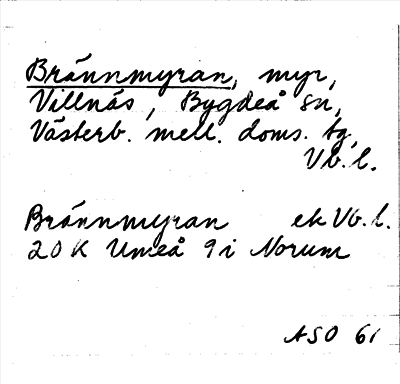 Brännmyran, myr,
Villnäs, Bygdeå sn,
Västerb. mell. doms. tg,
Vb. l.
Brännmyran ek Vb. l.
20 K Umeå 9 i Norum
ASO 61